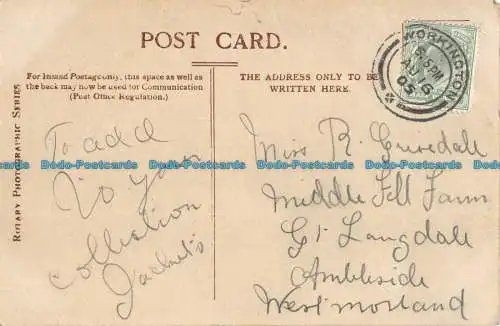 POST CARD.
For Inland Postage only, this space as well as
the back may now be used for Communication
(Post Office Regulation.)
THE ADDRESS ONLY TO BE
WRITTEN HERE.
ROTARY PHOTOGRAPHIC SERIES
WORKINGTON
5 PM
AU 6
05
To add
To your
collection
Miss R. Grisedale
Middle Fell Farm
Gt Langdale
Ambleside
Westmorland
Dodo-Postcards Dodo-Postcards Dodo-Postcards Dodo-Postcards Dodo-Postcards